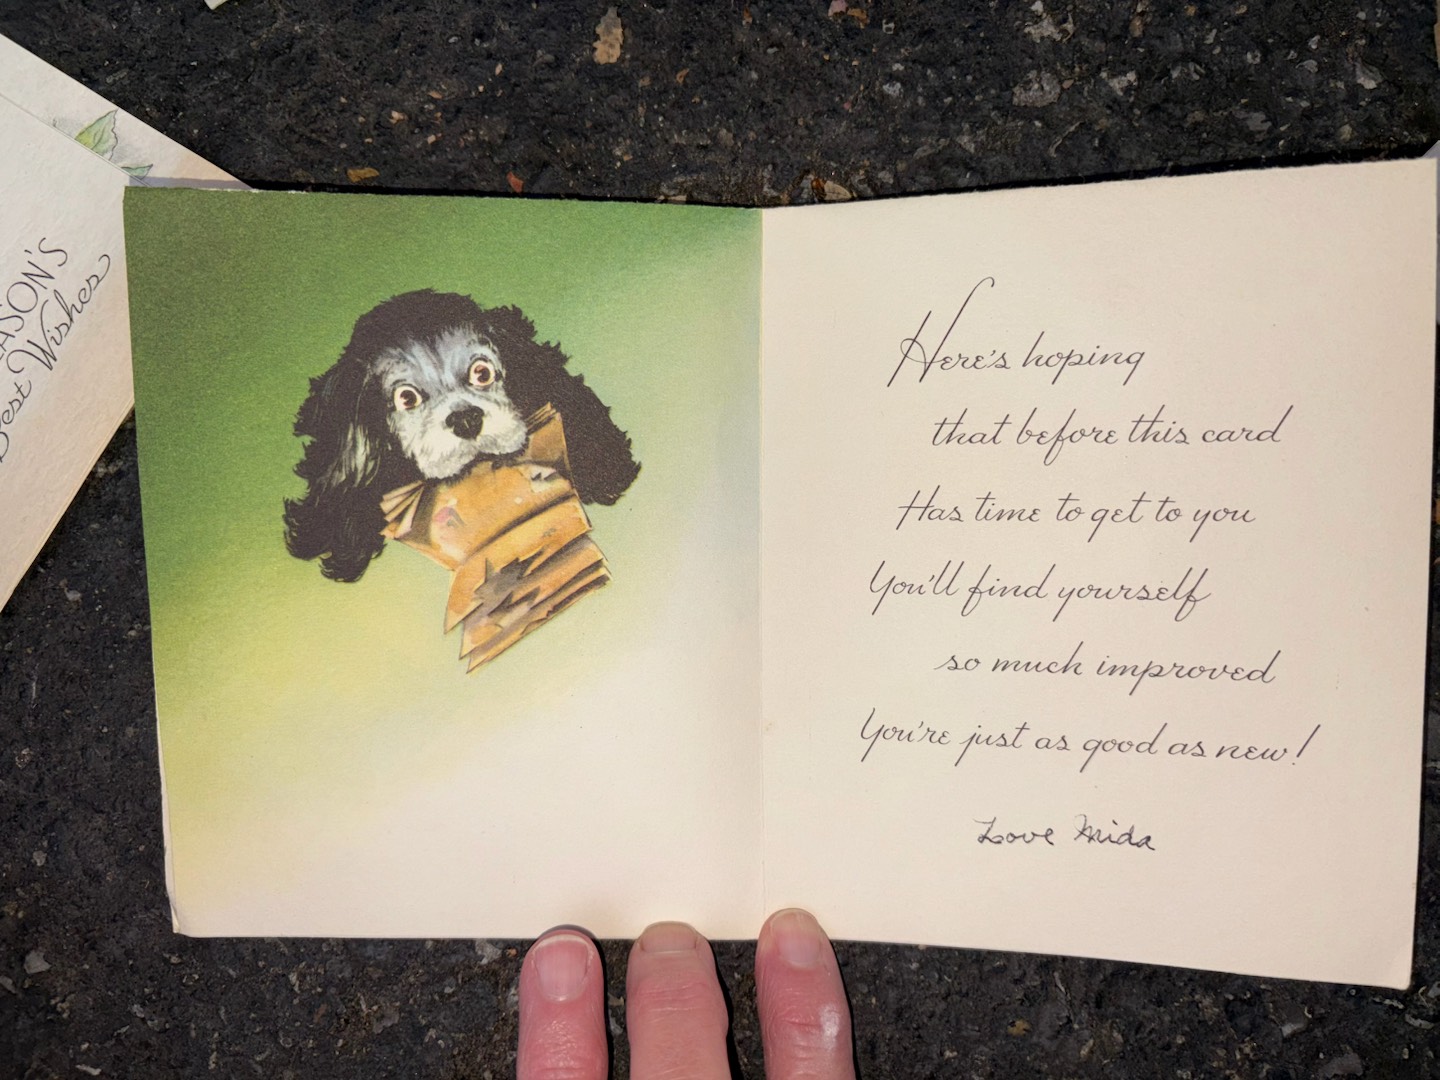 EASON'S
Best Wishes
Here's hoping
that before this card
Has time to get to you
You'll find yourself
so much improved
You're just as good as new!
Love Mida